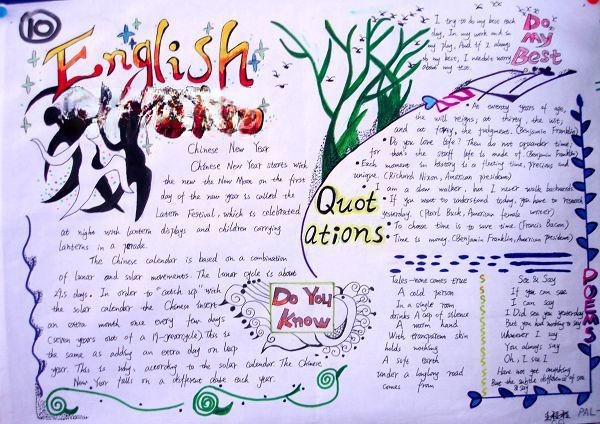 10
English
I try to do my best each
day, In my work and in
my play, And if I always
do my best, I needn't worry
about my test.
Do
My
Best
Chinese New Year
Chinese New Year starts with
the new the New Moon on the first
day of the new year is called the
Latern Festival, which is celebrated
at night with lantern displays and children carrying
lanterns in a parade.
The Chinese calendar is based on a combination
of lunar and solar movements. The lunar cycle is about
29.5 days. In order to "catch up" with
the solar calendar the Chinese insert
an extra month once every few days
(seven years out of a 19-yearcycle). This is
the same as adding an extra day on leap
year. This is why, according to the solar calendar. The Chinese
New Year falls on a different date each year.
Do You
Know
Quot
ations:
At twenty years of age,
the will reigns; at thirty, the wit;
and at forty, the judgment. (Benjamin Franklin)
Do you love life? Then do not squander time;
for that's the stuff life is made of. (Benjamin Franklin)
Each moment in history is a fleeting time, precious and
unique. (Richard Nixon, American president)
I am a slow walker, but I never walk backwards.
If you want to understand today, you have to research
yesterday. (Pearl Buck, American female writer)
To choose time is to save time. (Francis Bacon)
Time is money. (Benjamin Franklin, American president)
Tales-none comes true
A cold person
In a single room
drinks A cup of silence
A warm hand
With transparen skin
holds nothing
A soft earth
under a laughing road
comes from
See & Say
If you can see
I can say
I Did see you yesterday
But you had nothing to say
Whenever I say
You always say
Oh, I see I
Have not got anything
But the subtle difference of see
& say
POEMS
PAL-